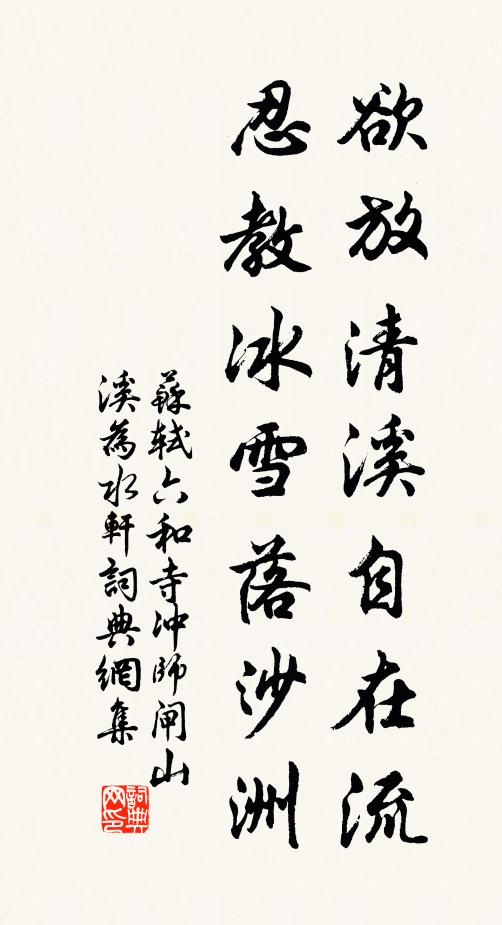 欲放清溪自在流
忍教冰雪落沙洲
蘇軾六和寺沖師闸山
溪為水軒詞典網集
詞典網印